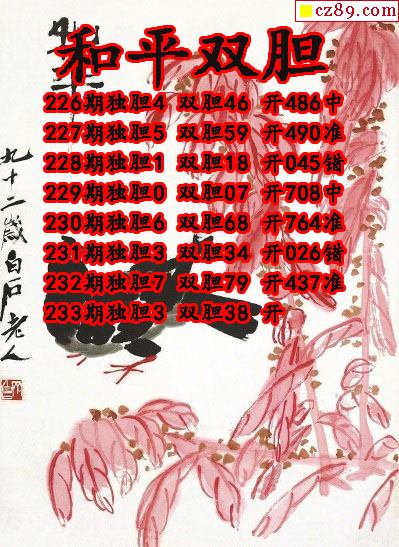 cz89.com
和平双胆
226期独胆4 双胆46 开486中
227期独胆5 双胆59 开490准
228期独胆1 双胆18 开045错
229期独胆0 双胆07 开708中
230期独胆6 双胆68 开764准
231期独胆3 双胆34 开026错
232期独胆7 双胆79 开437准
233期独胆3 双胆38 开
九十二岁白石老人